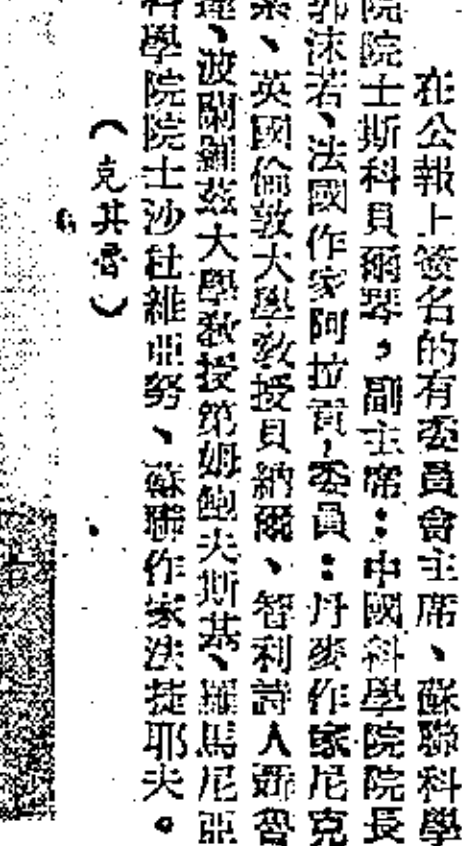 在公報上簽名的有委員會主席、蘇聯科學
院院士斯科貝爾琴,副主席:中國科學院院長
郭沫若、法國作家阿拉貢,委員:丹麥作家尼克
索、英國倫敦大學教授貝納爾、智利詩人聶魯
達、波蘭羅茲大學教授第姆鮑夫斯基、羅馬尼亞
科學院院士沙杜維亞努、蘇聯作家法捷耶夫。
(克其魯)